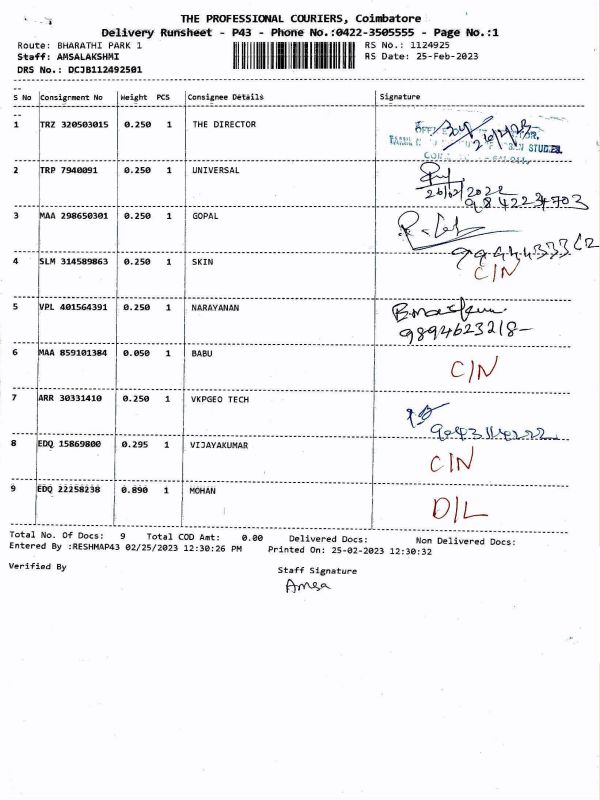 THE PROFESSIONAL COURIERS, Coimbatore
Delivery Runsheet - P43 - Phone No.:0422-3505555 - Page No.:1
Route: BHARATHI PARK 1 RS No.: 1124925
Staff: AMSALAKSHMI RS Date: 25-Feb-2023
DRS No.: DCJB112492501
S No Consignment No Weight PCS Consignee Details Signature
1 TRZ 320503015 0.250 1 THE DIRECTOR
26/2/23
STUDIES.
2 TRP 7940091 0.250 1 UNIVERSAL
26/02/2022
9842234703
3 MAA 298650301 0.250 1 GOPAL
4 SLM 314589863 0.250 1 SKIN C/N
5 VPL 401564391 0.250 1 NARAYANAN
9894623218-
6 MAA 859101384 0.050 1 BABU C/N
7 ARR 30331410 0.250 1 VKPGEO TECH
8 EDQ 15869800 0.295 1 VIJAYAKUMAR C/N
9 EDQ 22258238 0.890 1 MOHAN D/L
Total No. Of Docs: 9 Total COD Amt: 0.00 Delivered Docs: Non Delivered Docs:
Entered By :RESHMAP43 02/25/2023 12:30:26 PM Printed On: 25-02-2023 12:30:32
Verified By Staff Signature
Amsa